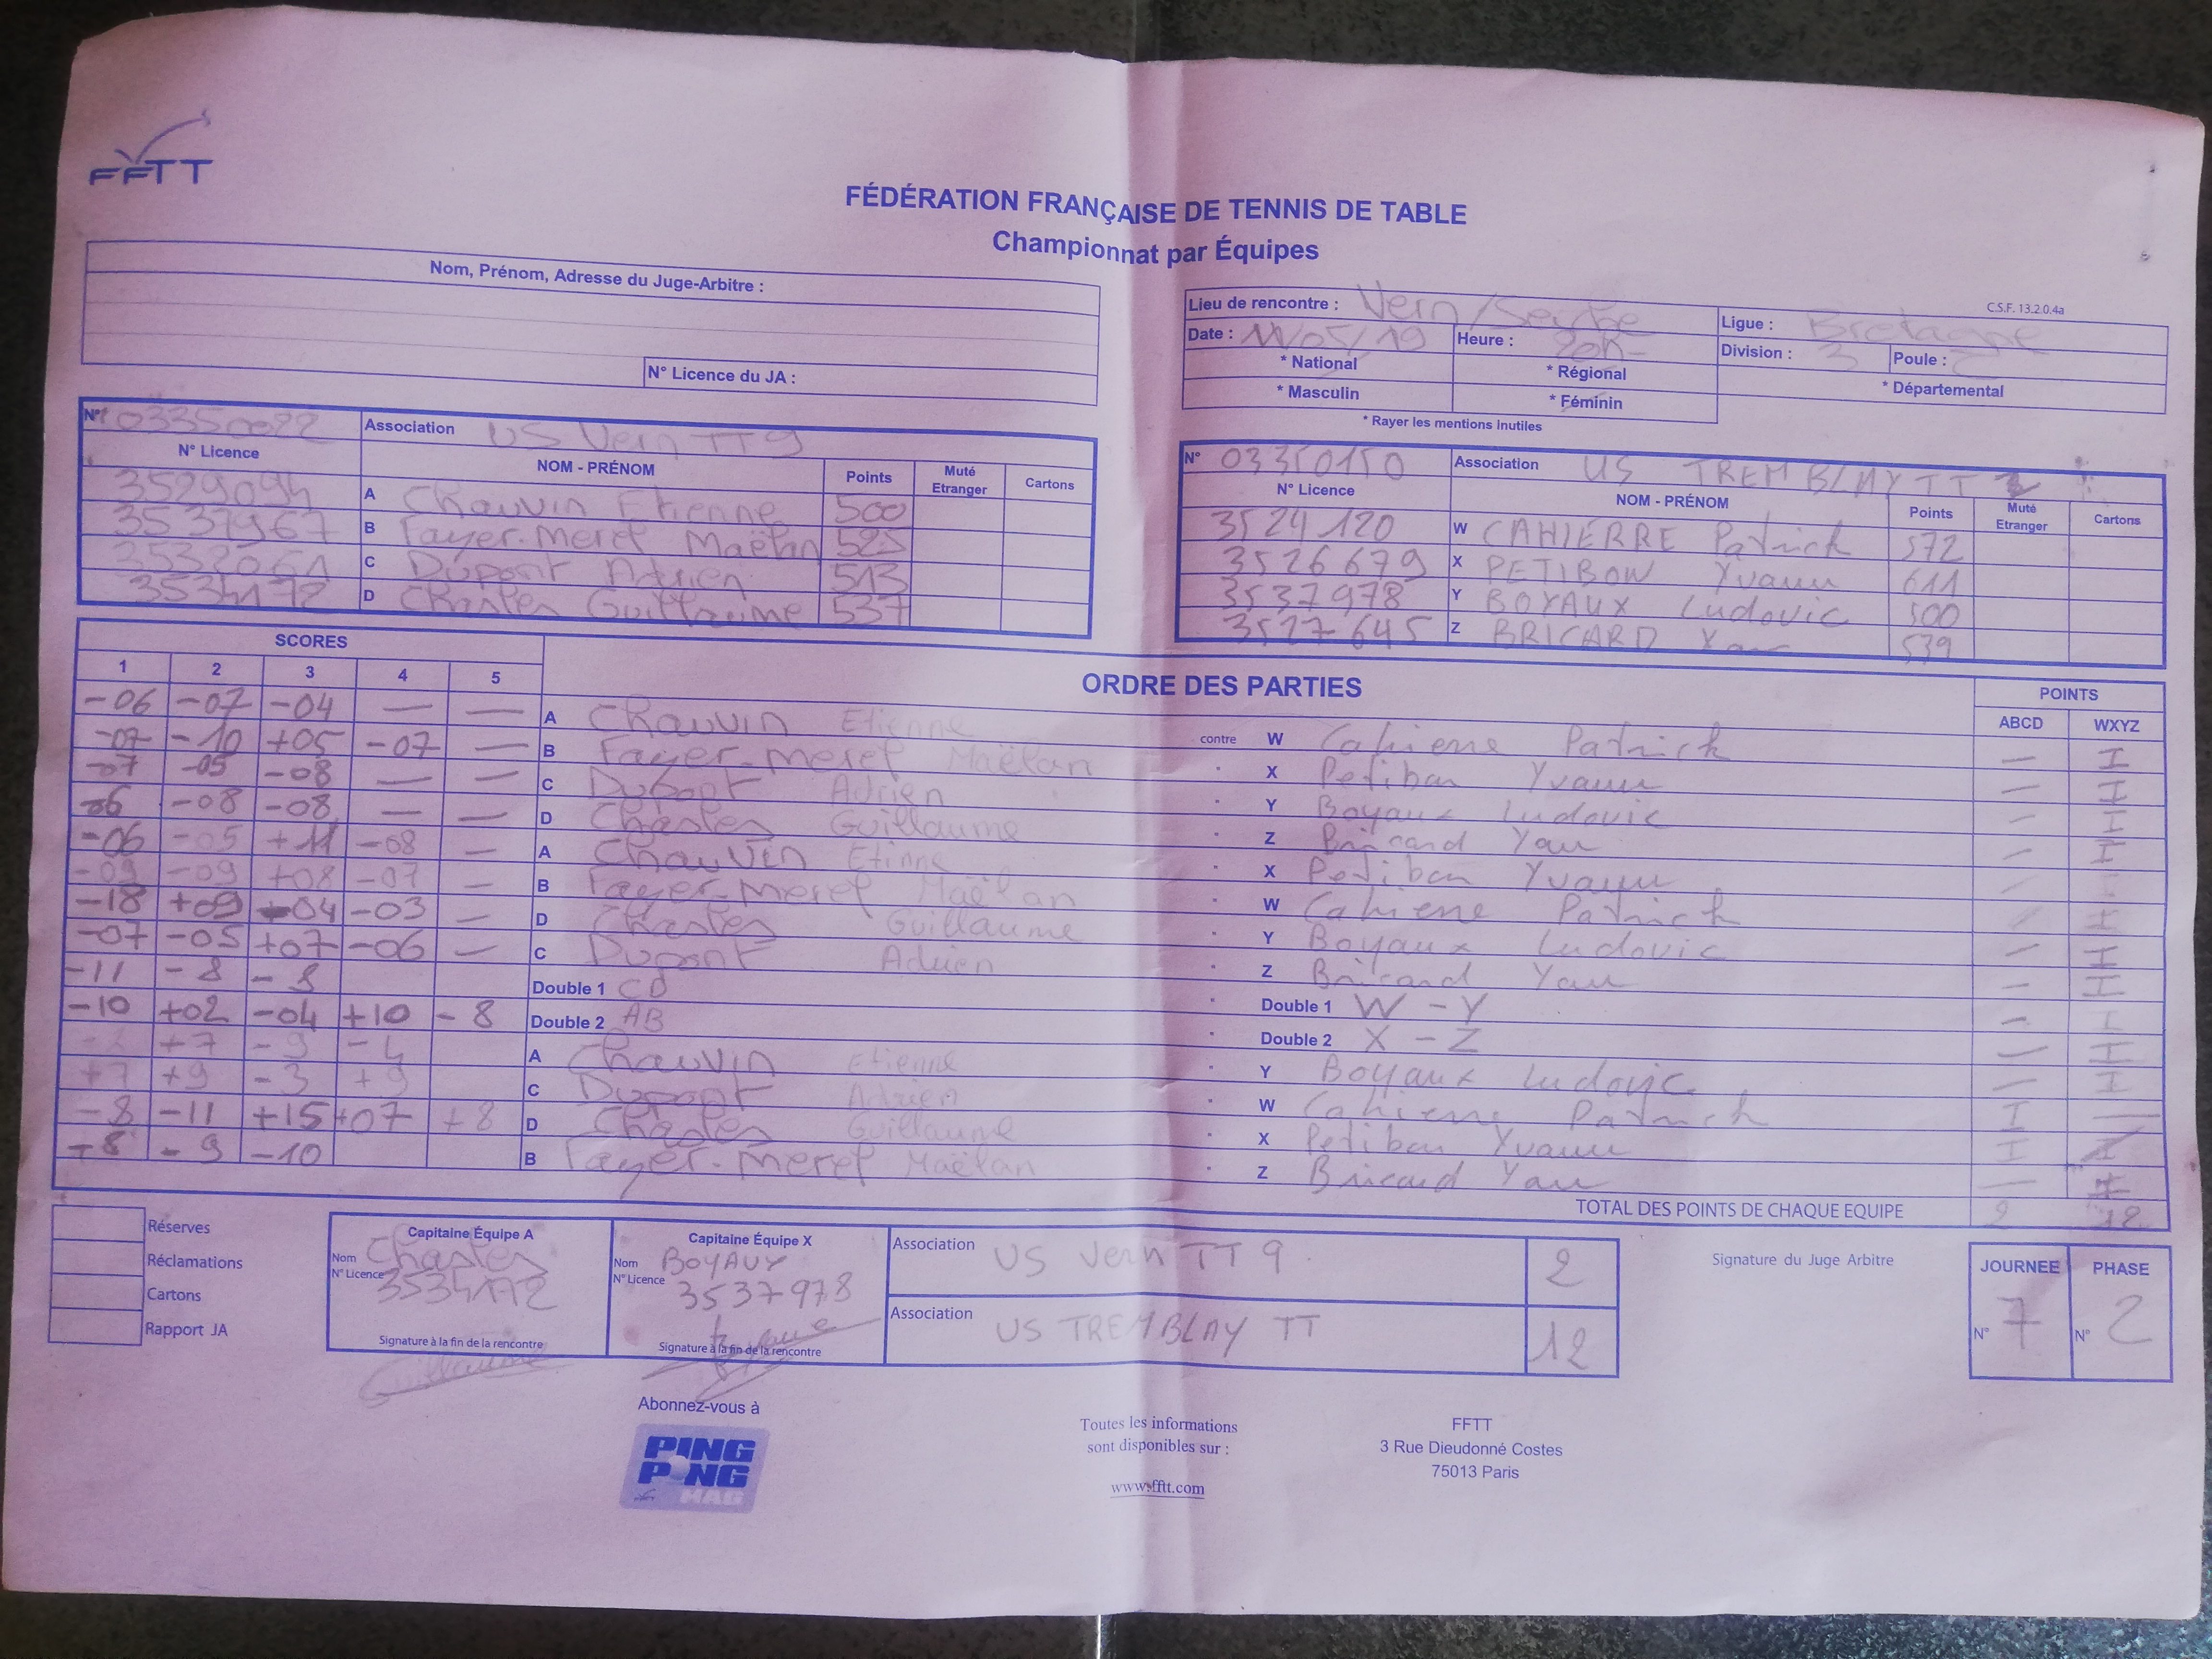 FFTT
FÉDÉRATION FRANÇAISE DE TENNIS DE TABLE
Championnat par Équipes
Nom, Prénom, Adresse du Juge-Arbitre :
N° Licence du JA :
C.S.F. 13.2.0.4a
Lieu de rencontre : Vern/Seiche Ligue : Bretagne
Date : 11/05/19 Heure : 20h Division : 3 Poule :
* National * Régional * Départemental
* Masculin * Féminin
* Rayer les mentions Inutiles
N° 03350022 Association US Vern TT 9
N° Licence NOM - PRÉNOM Points Muté Etranger Cartons
3529094 A Chauvin Etienne 500
3537967 B Fayer-Meret Maëlan 525
C Dupont Adrien 513
3534172 D Chasles Guillaume 537
N° 03350150 Association US TREMBLAY TT
N° Licence NOM - PRÉNOM Points Muté Etranger Cartons
3524120 W CAHIERRE Patrick 572
3526679 X PETIBON Yvann 611
3537978 Y BOYAUX Ludovic 500
3527645 Z BRICARD Yan 539
SCORES
1 2 3 4 5
ORDRE DES PARTIES
POINTS
ABCD WXYZ
-06 -07 -04 — — A Chauvin Etienne contre W Cahierre Patrick — I
-07 -10 +05 -07 — B Fayer-Meret Maëlan " X Petibon Yvann — I
-7 -05 -08 — — C Dupont Adrien " Y Boyaux Ludovic — I
-06 -08 -08 — — D Chasles Guillaume " Z Bricard Yan — I
-06 -05 +11 -08 — A Chauvin Etinne " X Petibon Yvann —
-09 -09 +08 -07 — B Fayer-Meret Maëlan " W Cahierre Patrick — I
-18 +09 -04 -03 — D Chasles Guillaume " Y Boyaux Ludovic — I
-07 -05 +07 -06 — C Dupont Adrien " Z Bricard Yan — I
-11 -8 -8 Double 1 CD " Double 1 W - Y — I
-10 +02 -04 +10 -8 Double 2 AB " Double 2 X - Z — I
+7 -9 -4 A Chauvin Etienne " Y Boyaux Ludovic — I
+7 +9 -3 +9 C Dupont Adrien " W Cahierre Patrick I —
-8 -11 +15 +07 +8 D Chasles Guillaume " X Petibon Yvann I
-8 -9 -10 B Fayer-Meret Maëlan " Z Bricard Yan — I
TOTAL DES POINTS DE CHAQUE EQUIPE 2 12
Réserves
Réclamations
Cartons
Rapport JA
Capitaine Équipe A
Nom Chasles
N° Licence 3534172
Signature à la fin de la rencontre
Guillaume
Capitaine Équipe X
Nom BOYAUX
N° Licence 3537978
Signature à la fin de la rencontre
Association US Vern TT 9. 2
Association US TREMBLAY TT 12
Signature du Juge Arbitre
JOURNEE PHASE
N° 7 N° 2
Abonnez-vous à
PING
PONG
MAG
Toutes les informations
sont disponibles sur :
www.fftt.com
FFTT
3 Rue Dieudonné Costes
75013 Paris